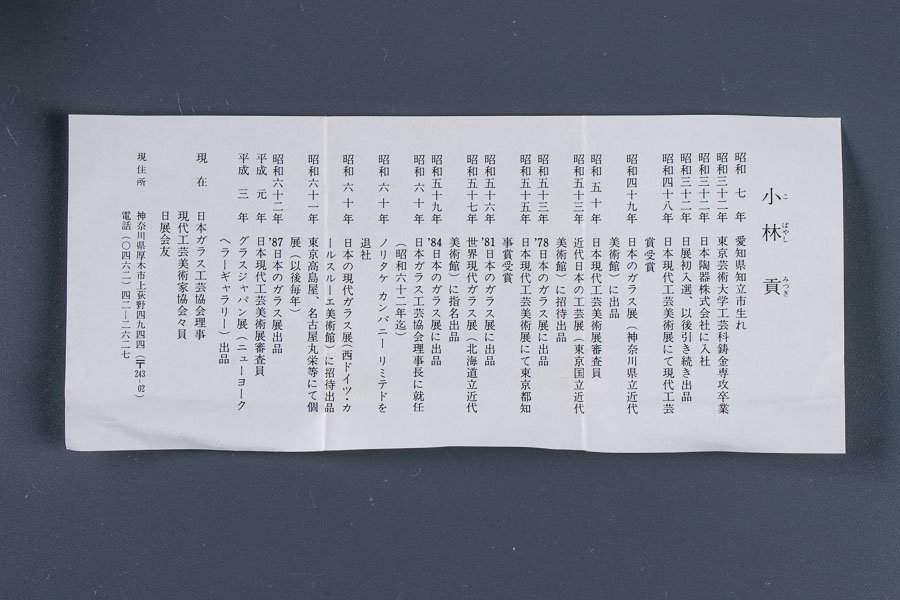 小林 貢
こ ばやし みつぎ
昭和 七 年 愛知県知立市生れ
昭和三十二年 東京芸術大学工芸科鋳金専攻卒業
昭和三十二年 日本陶器株式会社に入社
昭和三十二年 日展初入選、以後引き続き出品
昭和四十八年 日本現代工芸美術展にて現代工芸
賞受賞
昭和四十九年 日本のガラス展（神奈川県立近代
美術館）に出品
昭和 五 十年 日本現代工芸美術展審査員
昭和五十三年 近代日本の工芸展（東京国立近代
美術館）に招待出品
昭和五十三年 '78日本のガラス展に出品
昭和五十五年 日本現代工芸美術展にて東京都知
事賞受賞
昭和五十六年 '81日本のガラス展に出品
昭和五十七年 世界現代ガラス展（北海道立近代
美術館）に指名出品
昭和五十九年 '84日本のガラス展に出品
昭和 六 十年 日本ガラス工芸協会理事長に就任
（昭和六十二年迄）
昭和 六 十年 ノリタケ カンパニー リミテドを
退社
昭和 六 十年 日本の現代ガラス展（西ドイツ・カ
ールスルーエ美術館）に招待出品
昭和六十一年 東京髙島屋、名古屋丸栄等にて個
展（以後毎年）
昭和六十二年 '87日本のガラス展出品
平成 元 年 日本現代工芸美術展審査員
平成 三 年 グラスジャパン展（ニューヨーク
ヘラーギャラリー）出品
現 在 日本ガラス工芸協会理事
現代工芸美術家協会々員
日展会友
現住所 神奈川県厚木市上荻野四九四四（〒243-02）
電話（〇四六二）四二―二六二七